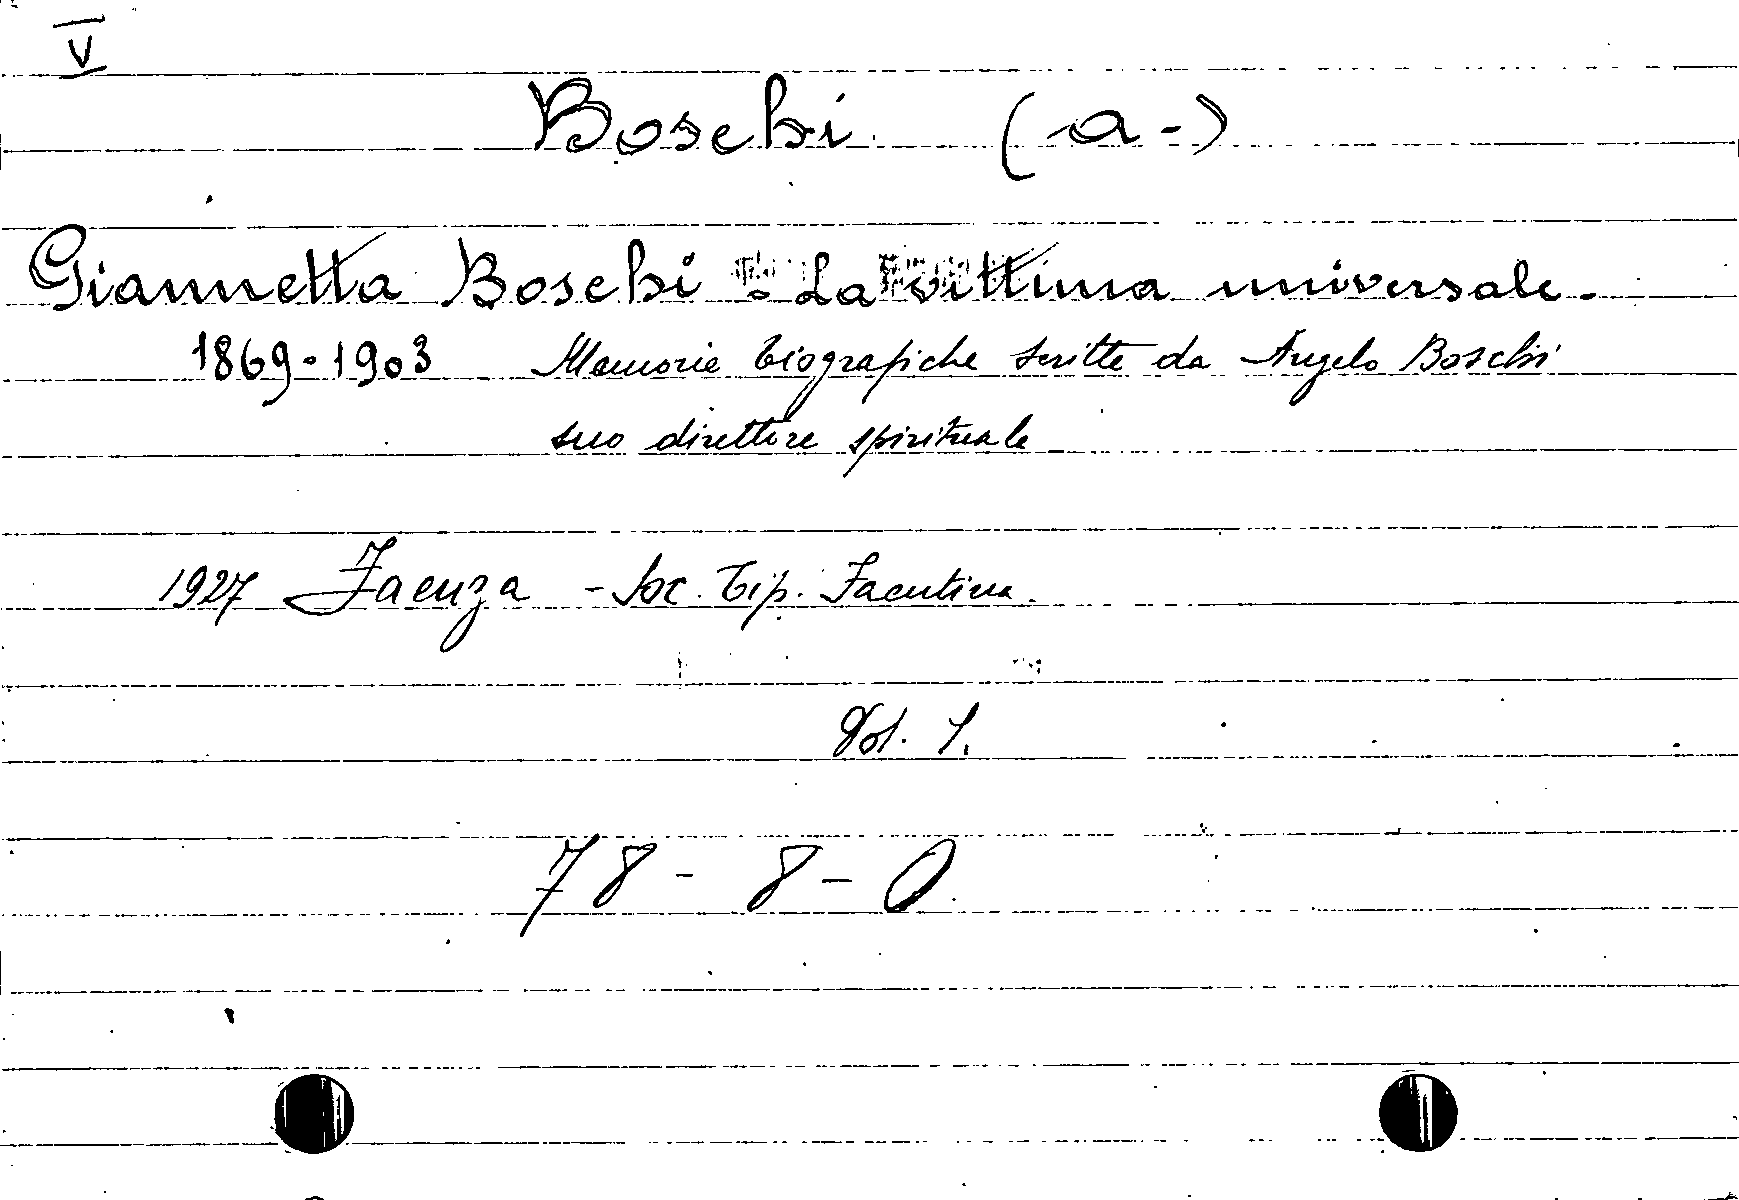 V
Boschi (a-)
Giannetta Boschi : La vittima universale.
1869-1903 Memorie biografiche scritte da Angelo Boschi
suo direttore spirituale
1927 Faenza - Soc. Tip. Faentina.
Vol. 1.
78 - 8 - 0